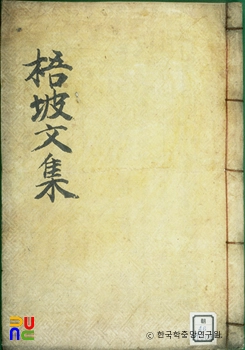 梧坡文集
© 한국학중앙연구원